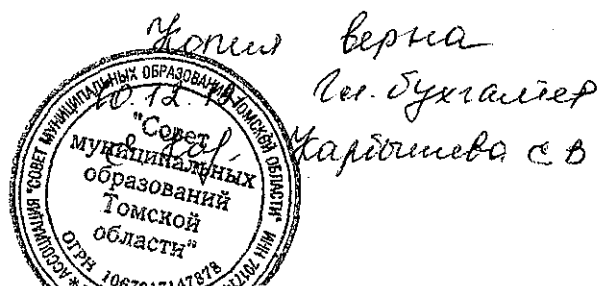 Копия верна
Гл. бухгалтер
Картышева С В
10.12.
АССОЦИАЦИЯ "СОВЕТ МУНИЦИПАЛЬНЫХ ОБРАЗОВАНИЙ ТОМСКОЙ ОБЛАСТИ" ИНН
"Совет
муниципальных
образований
Томской
области"
ОГРН 1067017147878